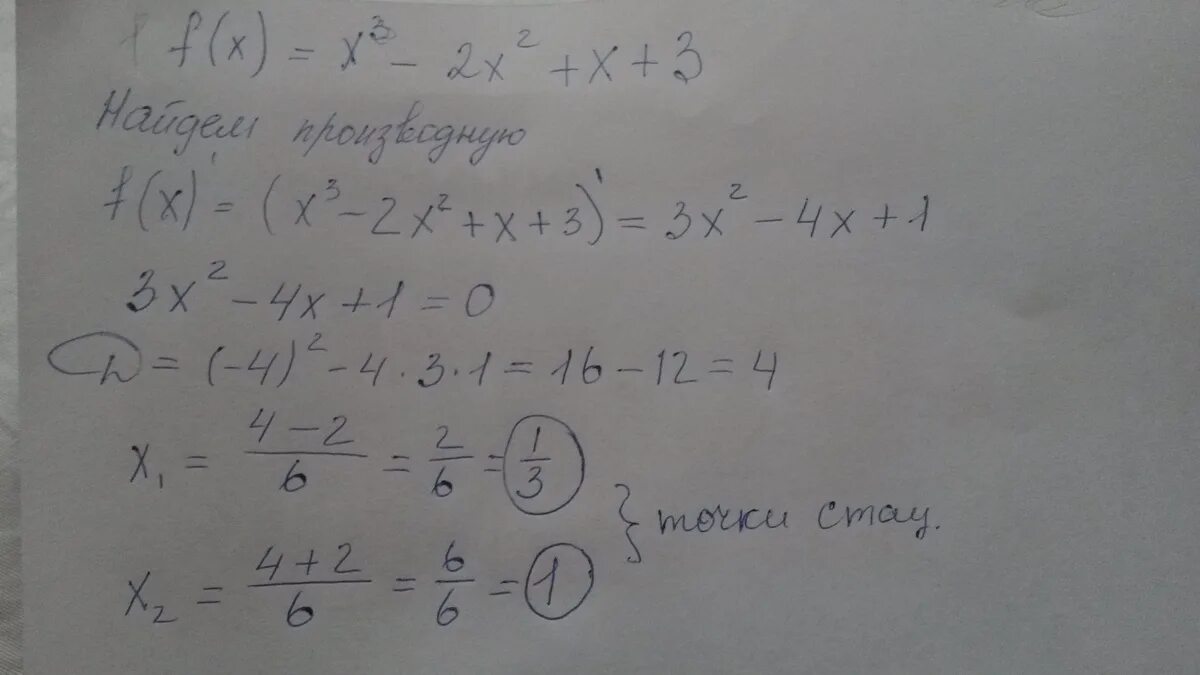 f(x) = x³ - 2x² + x + 3
Найдем производную
f(x)' = (x³ - 2x² + x + 3)' = 3x² - 4x + 1
3x² - 4x + 1 = 0
D = (-4)² - 4 · 3 · 1 = 16 - 12 = 4
x₁ = (4 - 2)/6 = 2/6 = 1/3
} точки стац.
x₂ = (4 + 2)/6 = 6/6 = 1